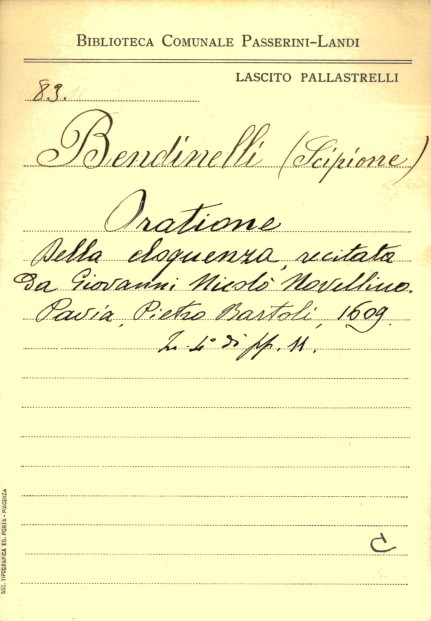 BIBLIOTECA COMUNALE PASSERINI-LANDI
LASCITO PALLASTRELLI
83.
Bendinelli (Scipione)
Oratione
della eloquenza, recitata
da Giovanni Nicolò Novellino.
Pavia, Pietro Bartoli, 1609.
In 4° di pp. 11.
C
SOC. TIPOGRAFICA ED. PORTA - PIACENZA